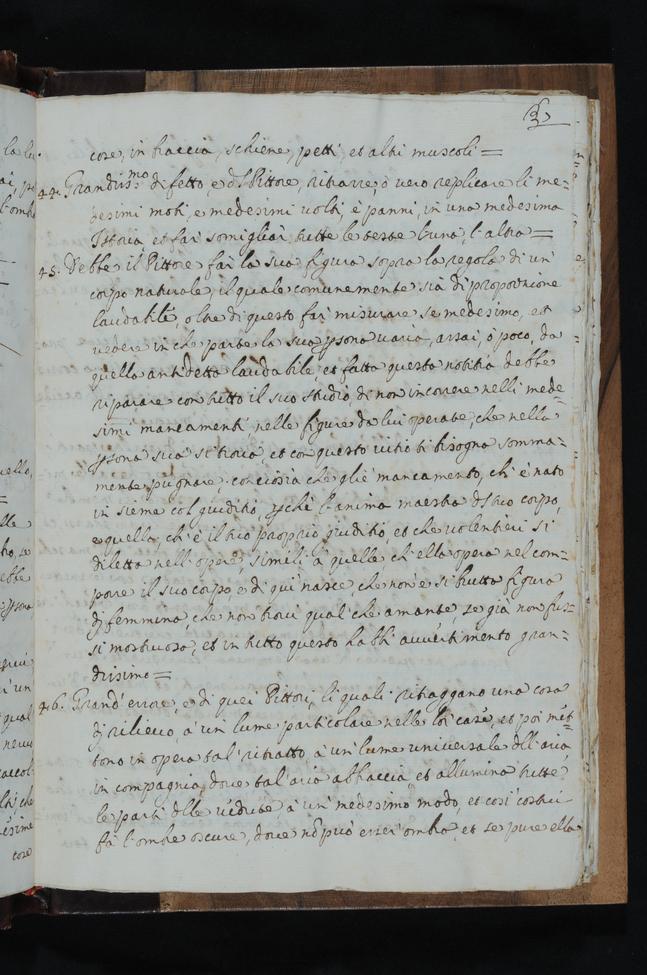 cose, in braccia, schiene, petti, et altri muscoli=
44. Grandiss.mo difetto, e dl Pittore, ritrarre, ò vero replicare li me-
desimi moti, e medesimi volti, è panni, in una medesima
Istoria et far somigliar tutte le teste l'una, l'altra=
45. Debbe il Pittore far la sua figura sopra la regola di un'
corpo naturale, il quale comunemente sia di proporzione
laudabile, oltre di questo far misurare se medesimo, et
vedere in che parte la sua psona varia, assai, ò poco, da
quella antidetta laudabile, et fatta questa notitia debbe
riparare con tutto il suo studio di non incorrere nelli mede-
simi mancamenti, nelle figure da lui operate, che nella
psona sua si trova, et con questo vitio ti bisogna somma-
mente pugnare, conciosia che gliè mancamento, ch'è nato
insieme col giuditio, pchè l'anima maestra dl tuo corpo,
e quella, ch'è il tuo proprio giuditio, et che volentieri si
diletta nell'opere, simili à quelle, ch'ella opera nel com-
porre il suo corpo, e di qui nasce, che non è si brutta figura
di femmina, che non trovi qual che amante, se già non fus-
si mostruosa, et in tutto questo habbi avvertimento gran-
dissimo=
46. Grand'errore, e di quei Pittori, li quali ritraggano una cosa
di rilievo, à un lume particolare nelle lor case, et poi met-
tono in opera tal ritratto, à un lume universale dll'aria,
in compagnia, dove tal'aria abbraccia, et allumina tutte
le parti dlle vedute, à un' medesimo modo, et così costui
fà l'ombre oscure, dove nõ può esser ombra, et se pure ella